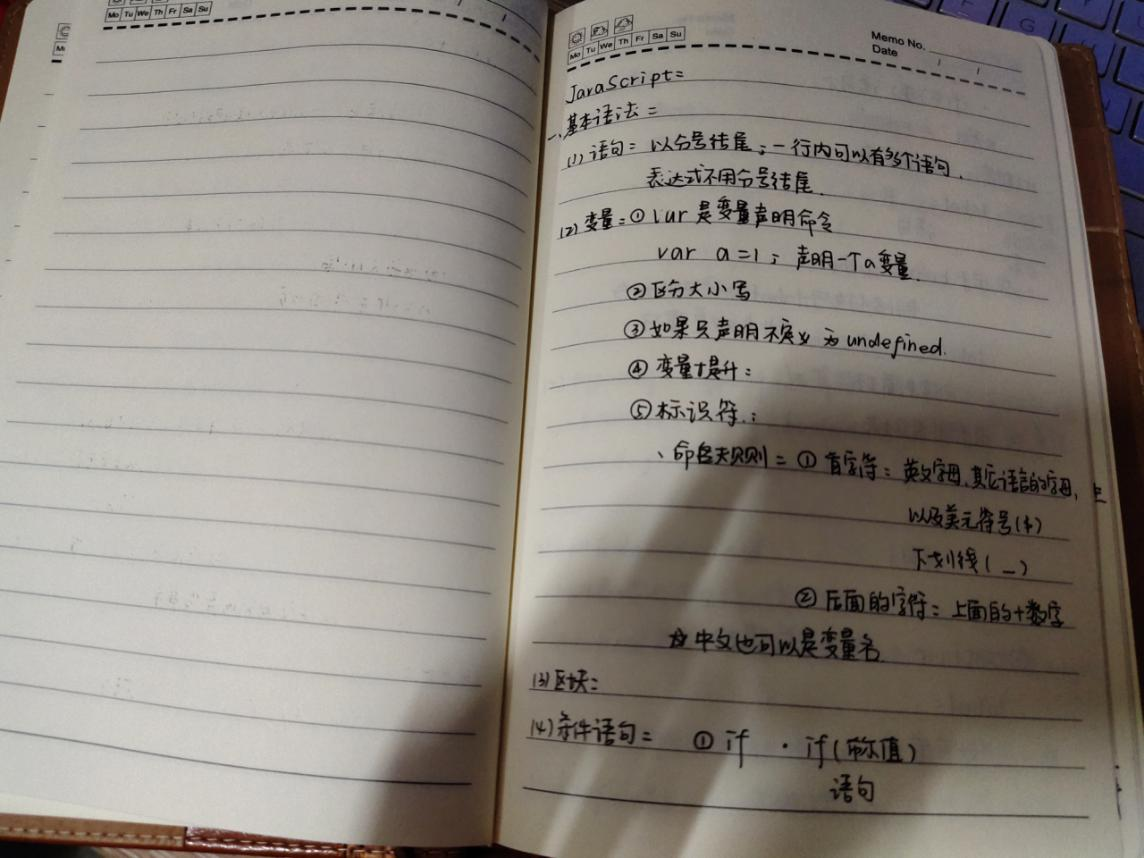 Mo Tu We Th Fr Sa Su
Mo Tu We Th Fr Sa Su
Memo No.
Date / /
JavaScript:
一、基本语法:
(1) 语句: 以分号结尾; 一行内可以有多个语句.
表达式不用分号结尾.
(2) 变量: ① var 是变量声明命令
var a=1; 声明一个a变量.
② 区分大小写
③ 如果只声明不定义 为 undefined.
④ 变量提升:
⑤ 标识符:
、命名规则: ① 首字符: 英文字母、其它语言的字母,
以及美元符号($)
下划线(_)
② 后面的字符: 上面的+数字
中文也可以是变量名.
(3) 区块:
(4) 条件语句: ① if · if(布尔值)
语句